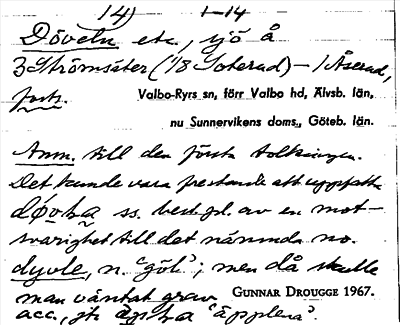 14) 1-14
Döveln etc., sjö å
3 Strömsäter (1/8 Soterud) – 1 Åserud,
forts.
Valbo-Ryrs sn, förr Valbo hd, Älvsb. län,
nu Sunnervikens doms., Göteb. län.
Anm. till den första tolkningen.
Det kunde vara frestande att uppfatta
ss. best. pl. av en mot-
svarighet till det nämnda no.
dyvle, n. 'göl'; men då skulle
man väntat grav
acc., jfr 'äpplena'.
GUNNAR DROUGGE 1967.